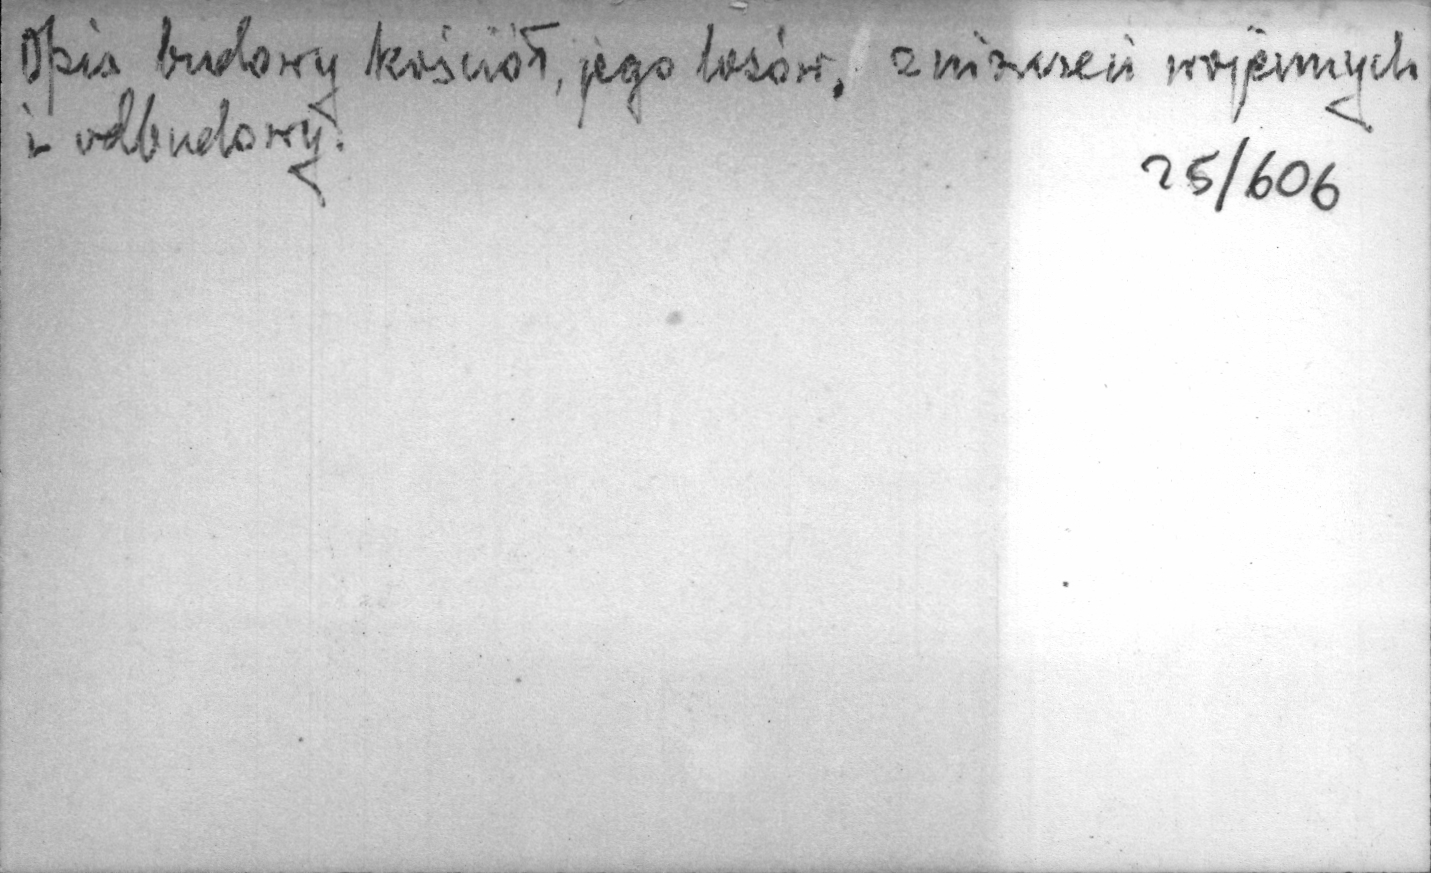 Opis budowy kościół, jego losów, zniszczeń wojennych
i odbudowy.
25/606